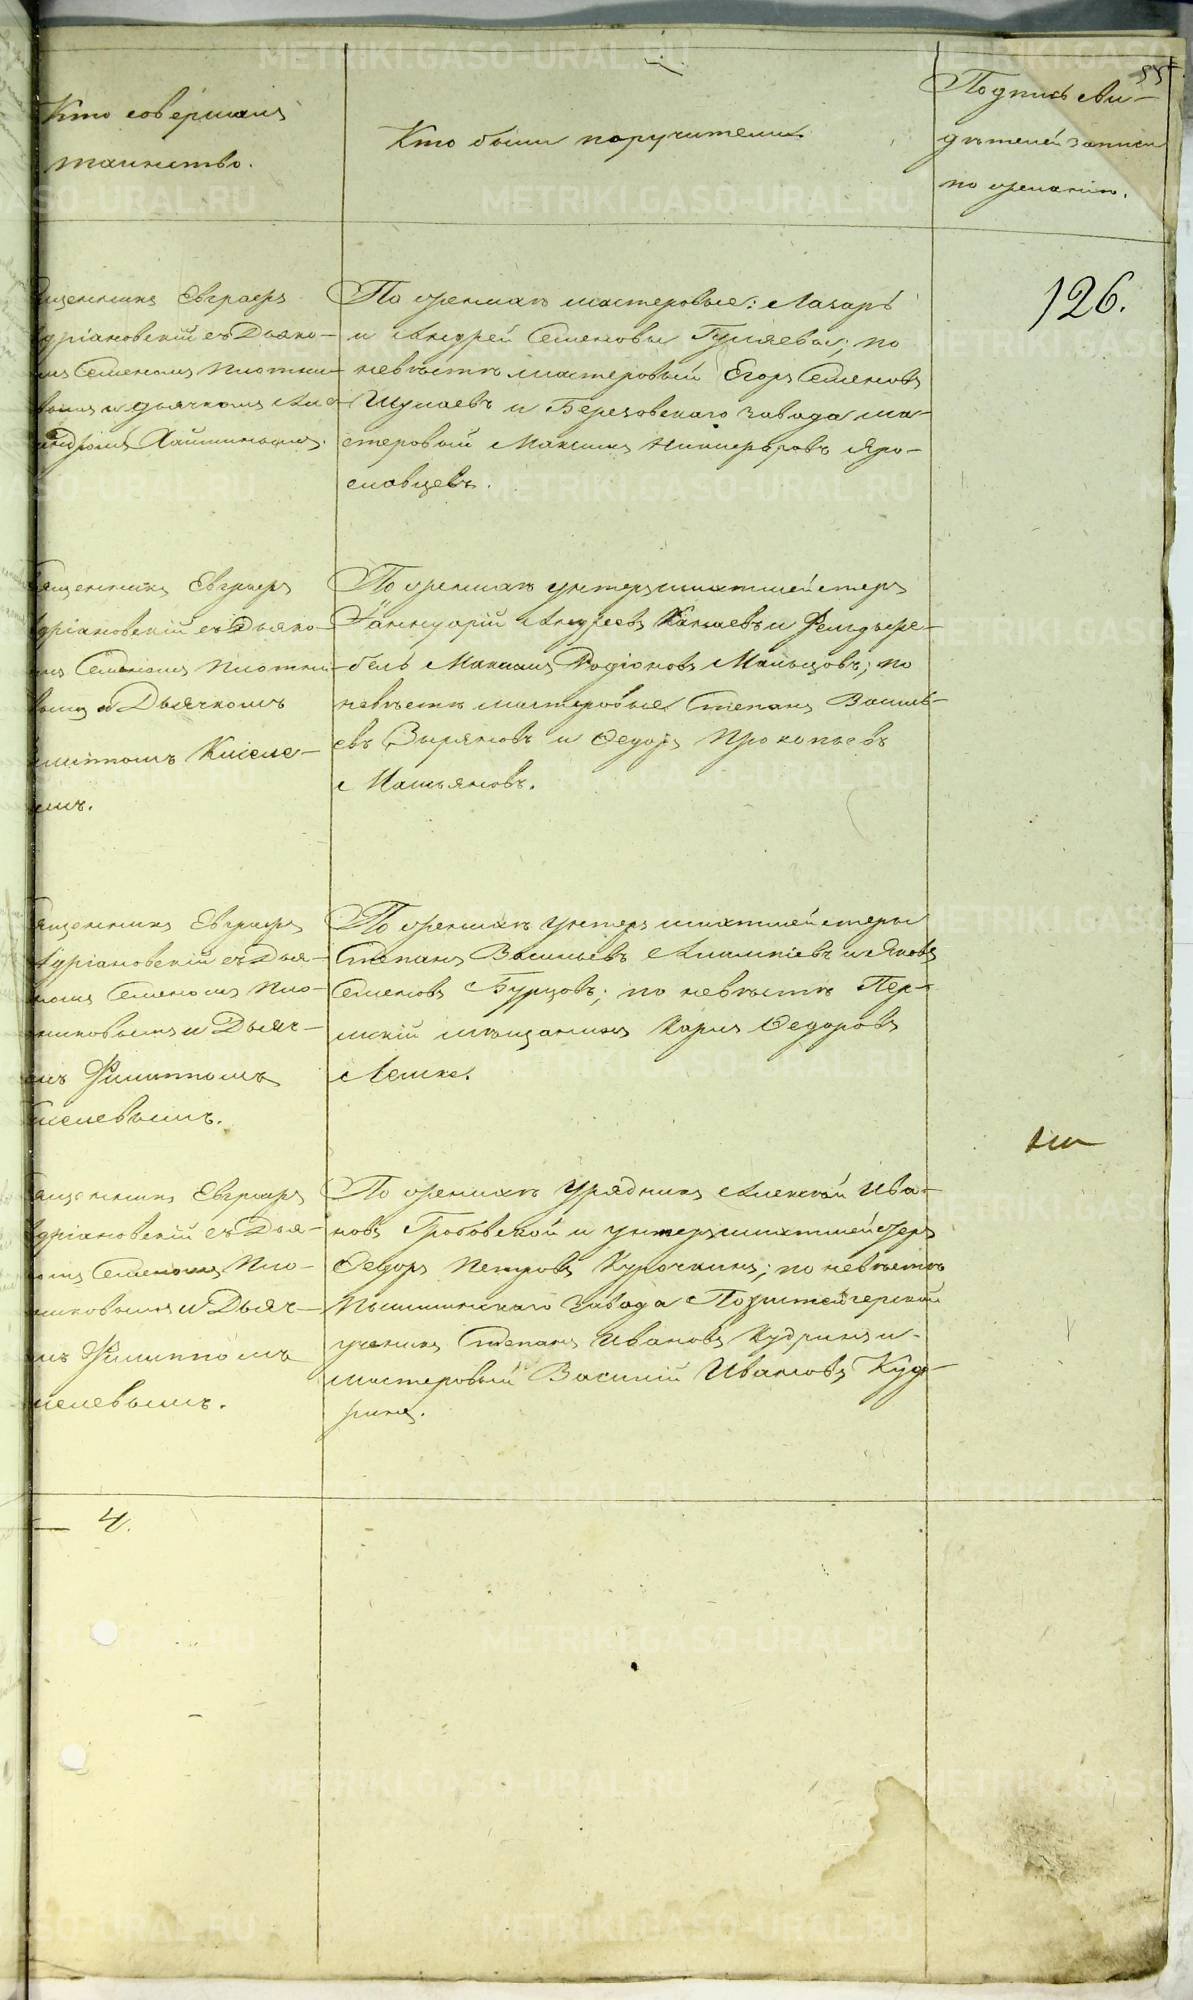 Кто совершалъ
таинство.
Кто были поручители.
Подпись сви-
дѣтелей записи
по желанію.
126.
Священникъ Евграфъ
Адріановскій съ Діако-
Семеномъ Плотни-
и дьячкомъ
По женихѣ мастеровые: Лазарь
и Андрей Семеновы Гуляевы; по
невѣстѣ мастеровый Егоръ Семеновъ
Шумаевъ и Березовскаго завода ма-
стеровый Максимъ Никифоровъ Яро-
славцевъ.
ященникъ Евграфъ
дріановскій съ Дьяко-
Семеномъ Плотни-
вымъ и Дьячкомъ
илиппомъ Киселе-
ымъ.
По женихѣ унтеръ шихтмейстеръ
Іаннуарій Андреевъ и Фельдфе-
бель Максимъ Родіоновъ Мальцовъ; по
невѣстѣ мастеровые Степанъ Василь-
евъ Зыряновъ и Федоръ Прокопьевъ
ященникъ Евграфъ
Адріановскій съ Дья-
Семеномъ Пло-
никовымъ и Дьяч-
мъ Филиппомъ
иселевымъ.
По женихѣ унтеръ шихтмейстеры
Степанъ Васильевъ и Яковъ
Семеновъ Бурцовъ; по невѣстѣ Пер-
мскій мѣщанинъ Карлъ Федоровъ
Лемке.
ященникъ Евграфъ
дріановскій съ Дья-
Семеномъ Пло-
никовымъ и Дьяч-
мъ Филиппомъ
иселевымъ.
По женихѣ Урядникъ Алексѣй Ива-
новъ Гробовской и унтеръ шихтмейстеръ
Федоръ Петровъ Курочкинъ; по невѣстѣ
Пышминскаго завода
ученикъ Степанъ Ивановъ Кудринъ и
мастеровый Василій Ивановъ Куд-
ринъ.
— 4.
METRIKI.GASO-URAL.RU